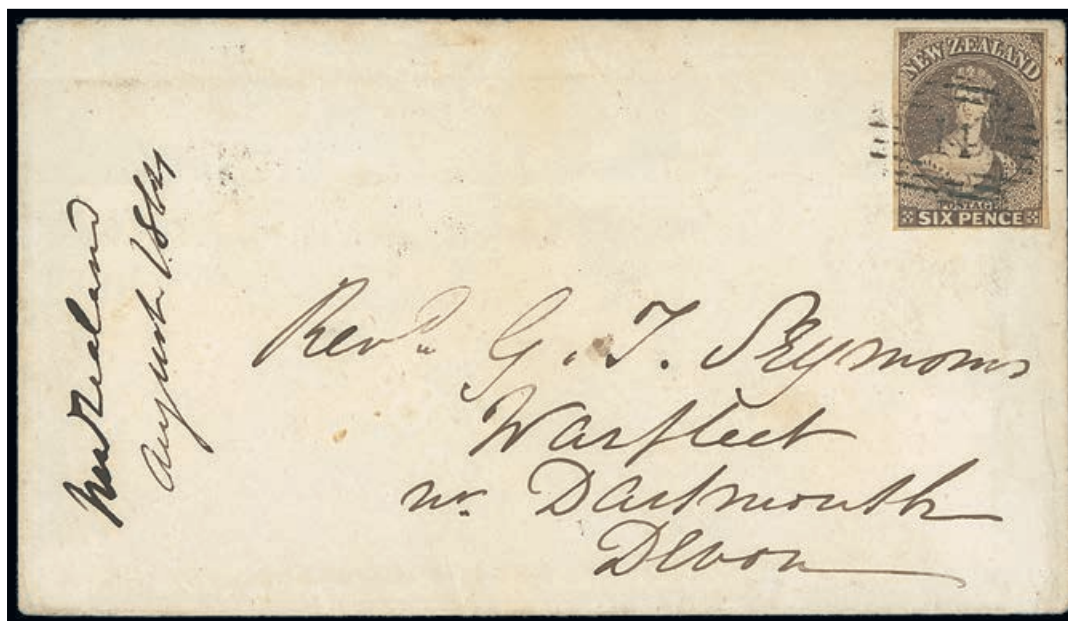 NEW ZEALAND
POSTAGE
SIX PENCE
New Zealand
August 1864
Revd. G. T. Seymour
Warfleet
nr. Dartmouth
Devon